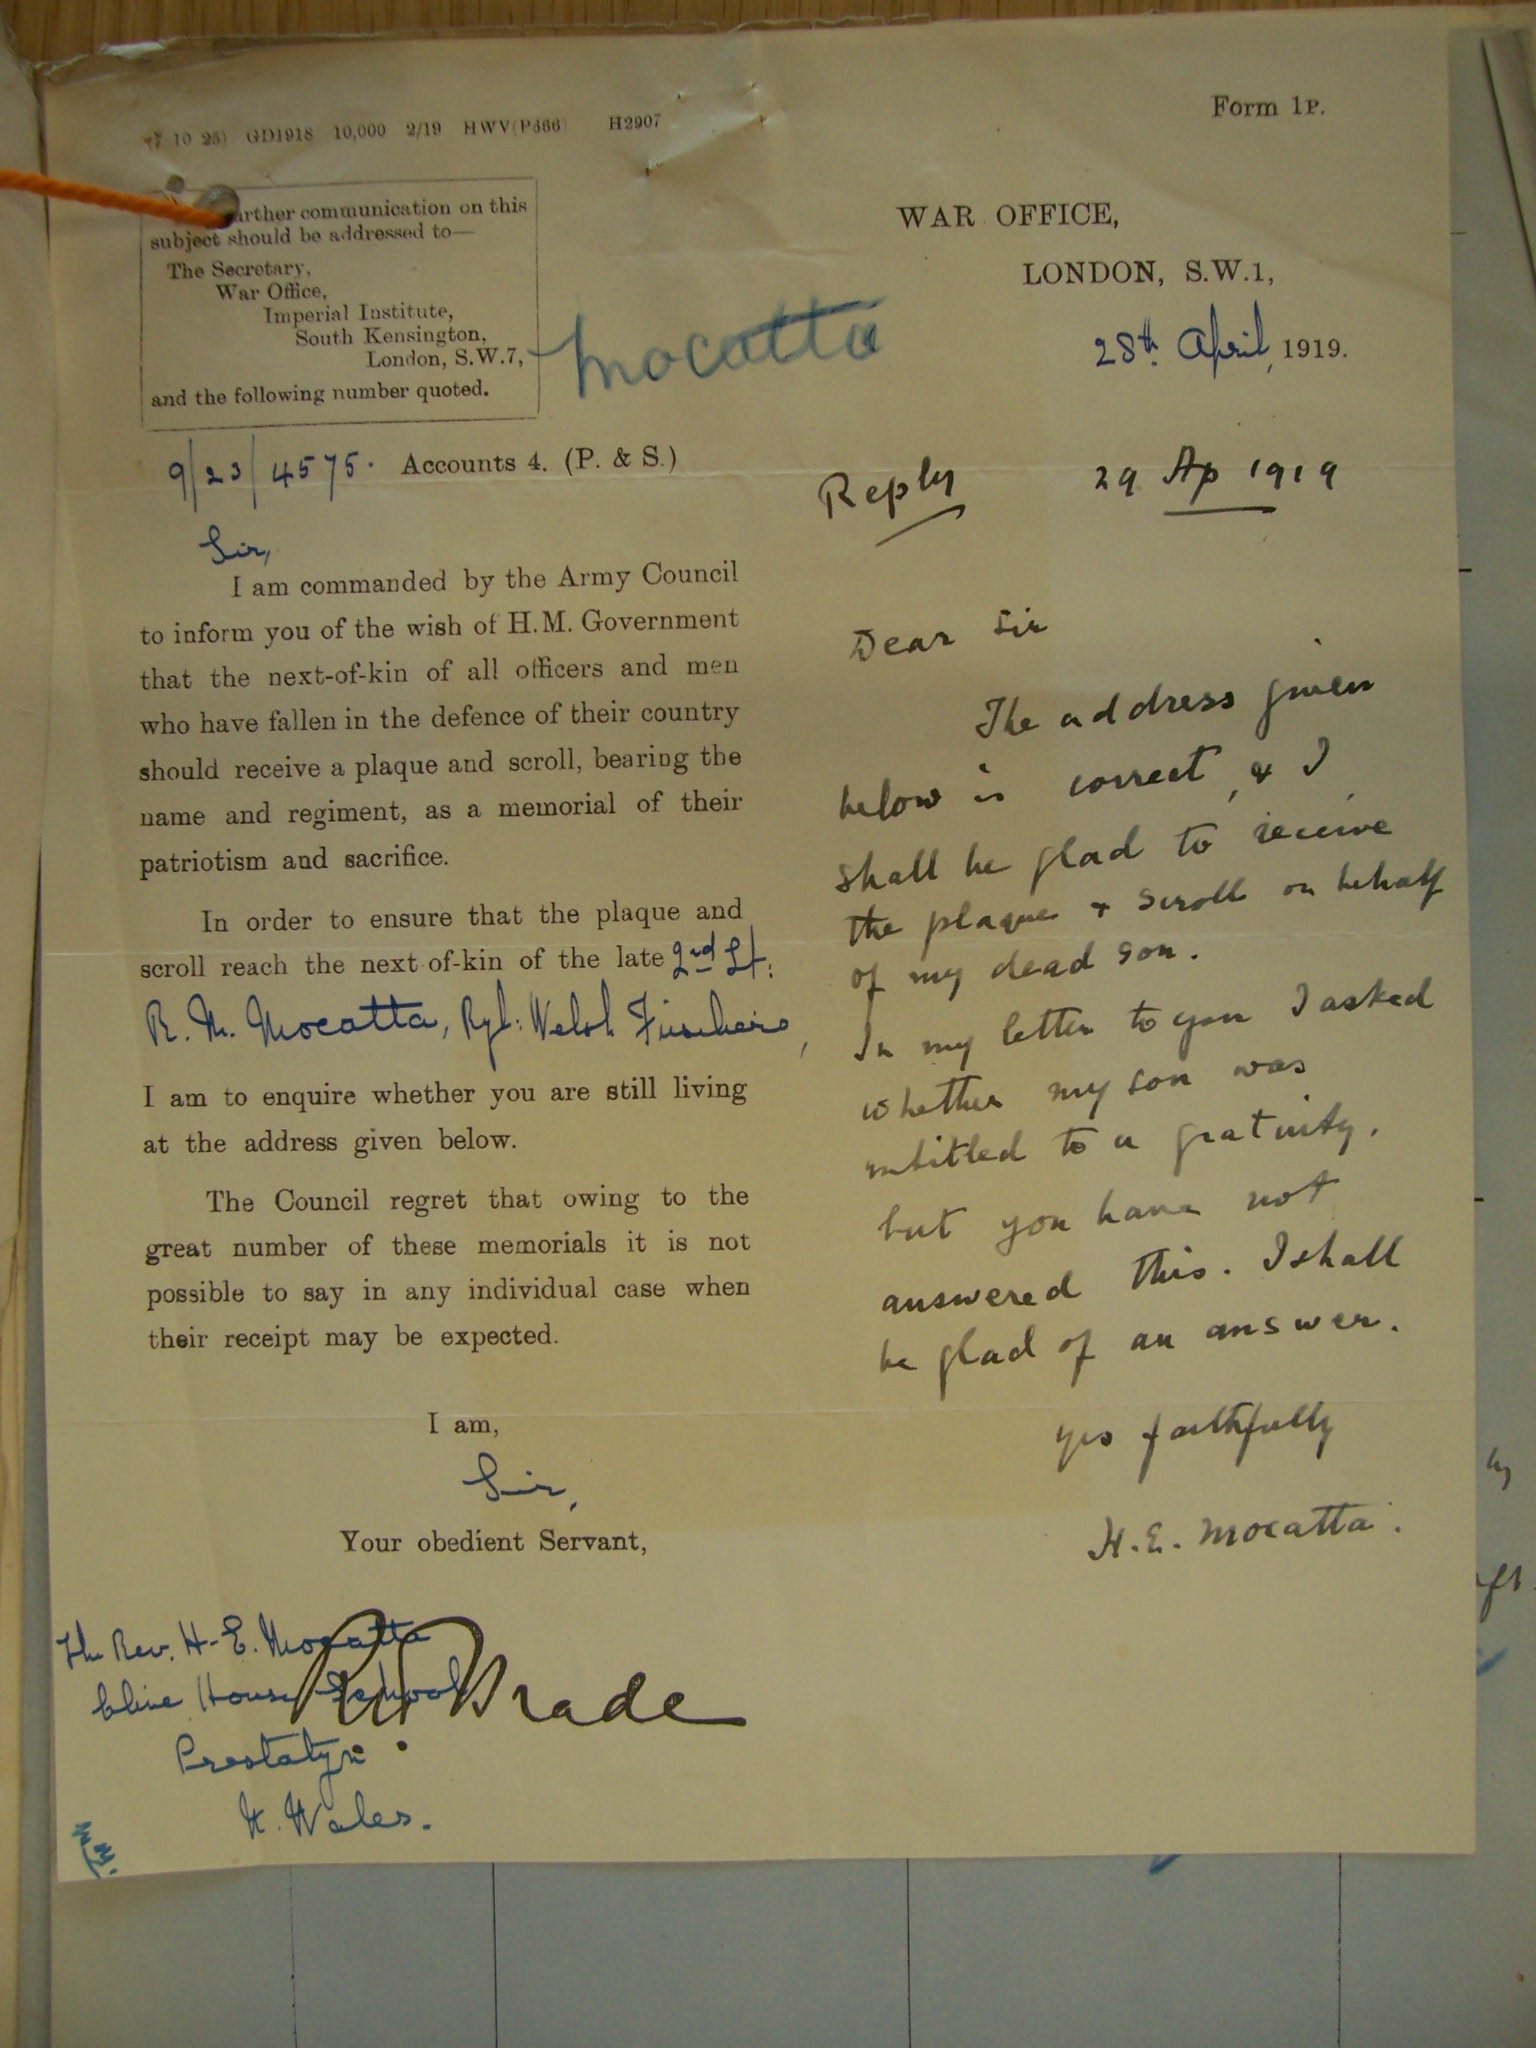 10 25) GD1918 10,000 2/19 HWV(P366) H2907
Form 1P.
urther communication on this
subject should be addressed to—
The Secretary,
War Office,
Imperial Institute,
South Kensington,
London, S.W.7,
and the following number quoted.
WAR OFFICE,
LONDON, S.W.1,
28th April, 1919.
Mocatta
9/23/4575. Accounts 4. (P. & S.)
Sir,
I am commanded by the Army Council
to inform you of the wish of H.M. Government
that the next-of-kin of all officers and men
who have fallen in the defence of their country
should receive a plaque and scroll, bearing the
name and regiment, as a memorial of their
patriotism and sacrifice.
In order to ensure that the plaque and
scroll reach the next of-kin of the late 2nd Lt:
R. M. Mocatta, Ryl: Welsh Fusiliers,
I am to enquire whether you are still living
at the address given below.
The Council regret that owing to the
great number of these memorials it is not
possible to say in any individual case when
their receipt may be expected.
I am,
Sir,
Your obedient Servant,
The Rev. H. E. Mocatta
Clive House School
Prestatyn
N. Wales.
Brade
Reply
29 Ap 1919
Dear Sir
The address given
below is correct, & I
shall be glad to receive
the plaque & scroll on behalf
of my dead son.
In my letter to you I asked
whether my son was
entitled to a gratuity,
but you have not
answered this. I shall
be glad of an answer.
yrs faithfully
H. E. Mocatta.